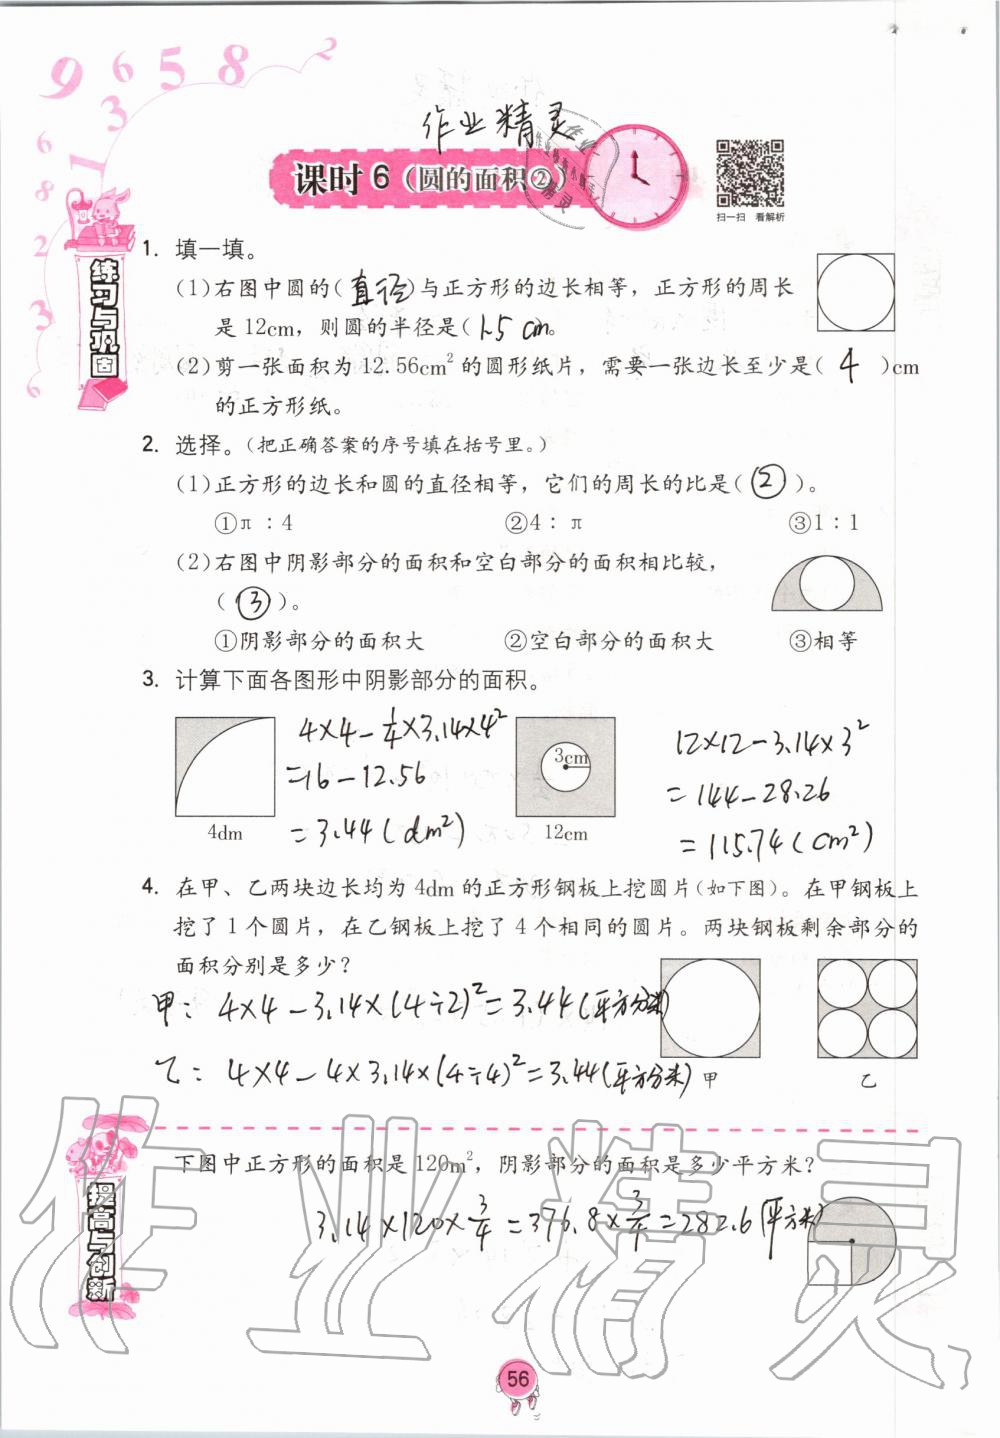 9 6 5 8 2
3
6 1
8
2
3
6
作业精灵
课时6（圆的面积②）
扫一扫 看解析
练习与巩固
1. 填一填。
(1)右图中圆的(直径)与正方形的边长相等，正方形的周长
是12cm，则圆的半径是(1.5cm)。
(2)剪一张面积为12.56cm²的圆形纸片，需要一张边长至少是( 4 )cm
的正方形纸。
2. 选择。(把正确答案的序号填在括号里。)
(1)正方形的边长和圆的直径相等，它们的周长的比是( ② )。
①π∶4 ②4∶π ③1∶1
(2)右图中阴影部分的面积和空白部分的面积相比较，
( ③ )。
①阴影部分的面积大 ②空白部分的面积大 ③相等
3. 计算下面各图形中阴影部分的面积。
4×4-¼×3.14×4²
=16-12.56
=3.44(dm²)
4dm
3cm
12cm
12×12-3.14×3²
=144-28.26
=115.74(cm²)
4. 在甲、乙两块边长均为4dm的正方形钢板上挖圆片(如下图)。在甲钢板上
挖了1个圆片，在乙钢板上挖了4个相同的圆片。两块钢板剩余部分的
面积分别是多少?
甲: 4×4-3.14×(4÷2)²=3.44(平方分米)
乙: 4×4-4×3.14×(4÷4)²=3.44(平方分米)
甲 乙
提高与创新
下图中正方形的面积是120m²，阴影部分的面积是多少平方米?
3.14×120×3/4=376.8×3/4=282.6(平方米)
作业精灵
56